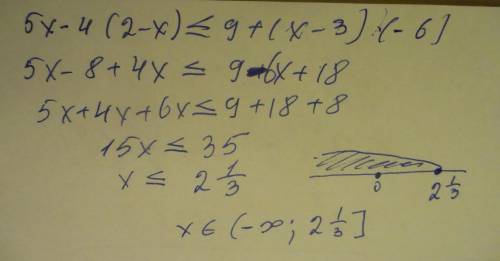 5x-4(2-x) ≤ 9+(x-3)·(-6)
5x-8+4x ≤ 9-6x+18
5x+4x+6x ≤ 9+18+8
15x ≤ 35
x ≤ 2 1/3
0 2 1/3
x ∈ (-∞; 2 1/3]